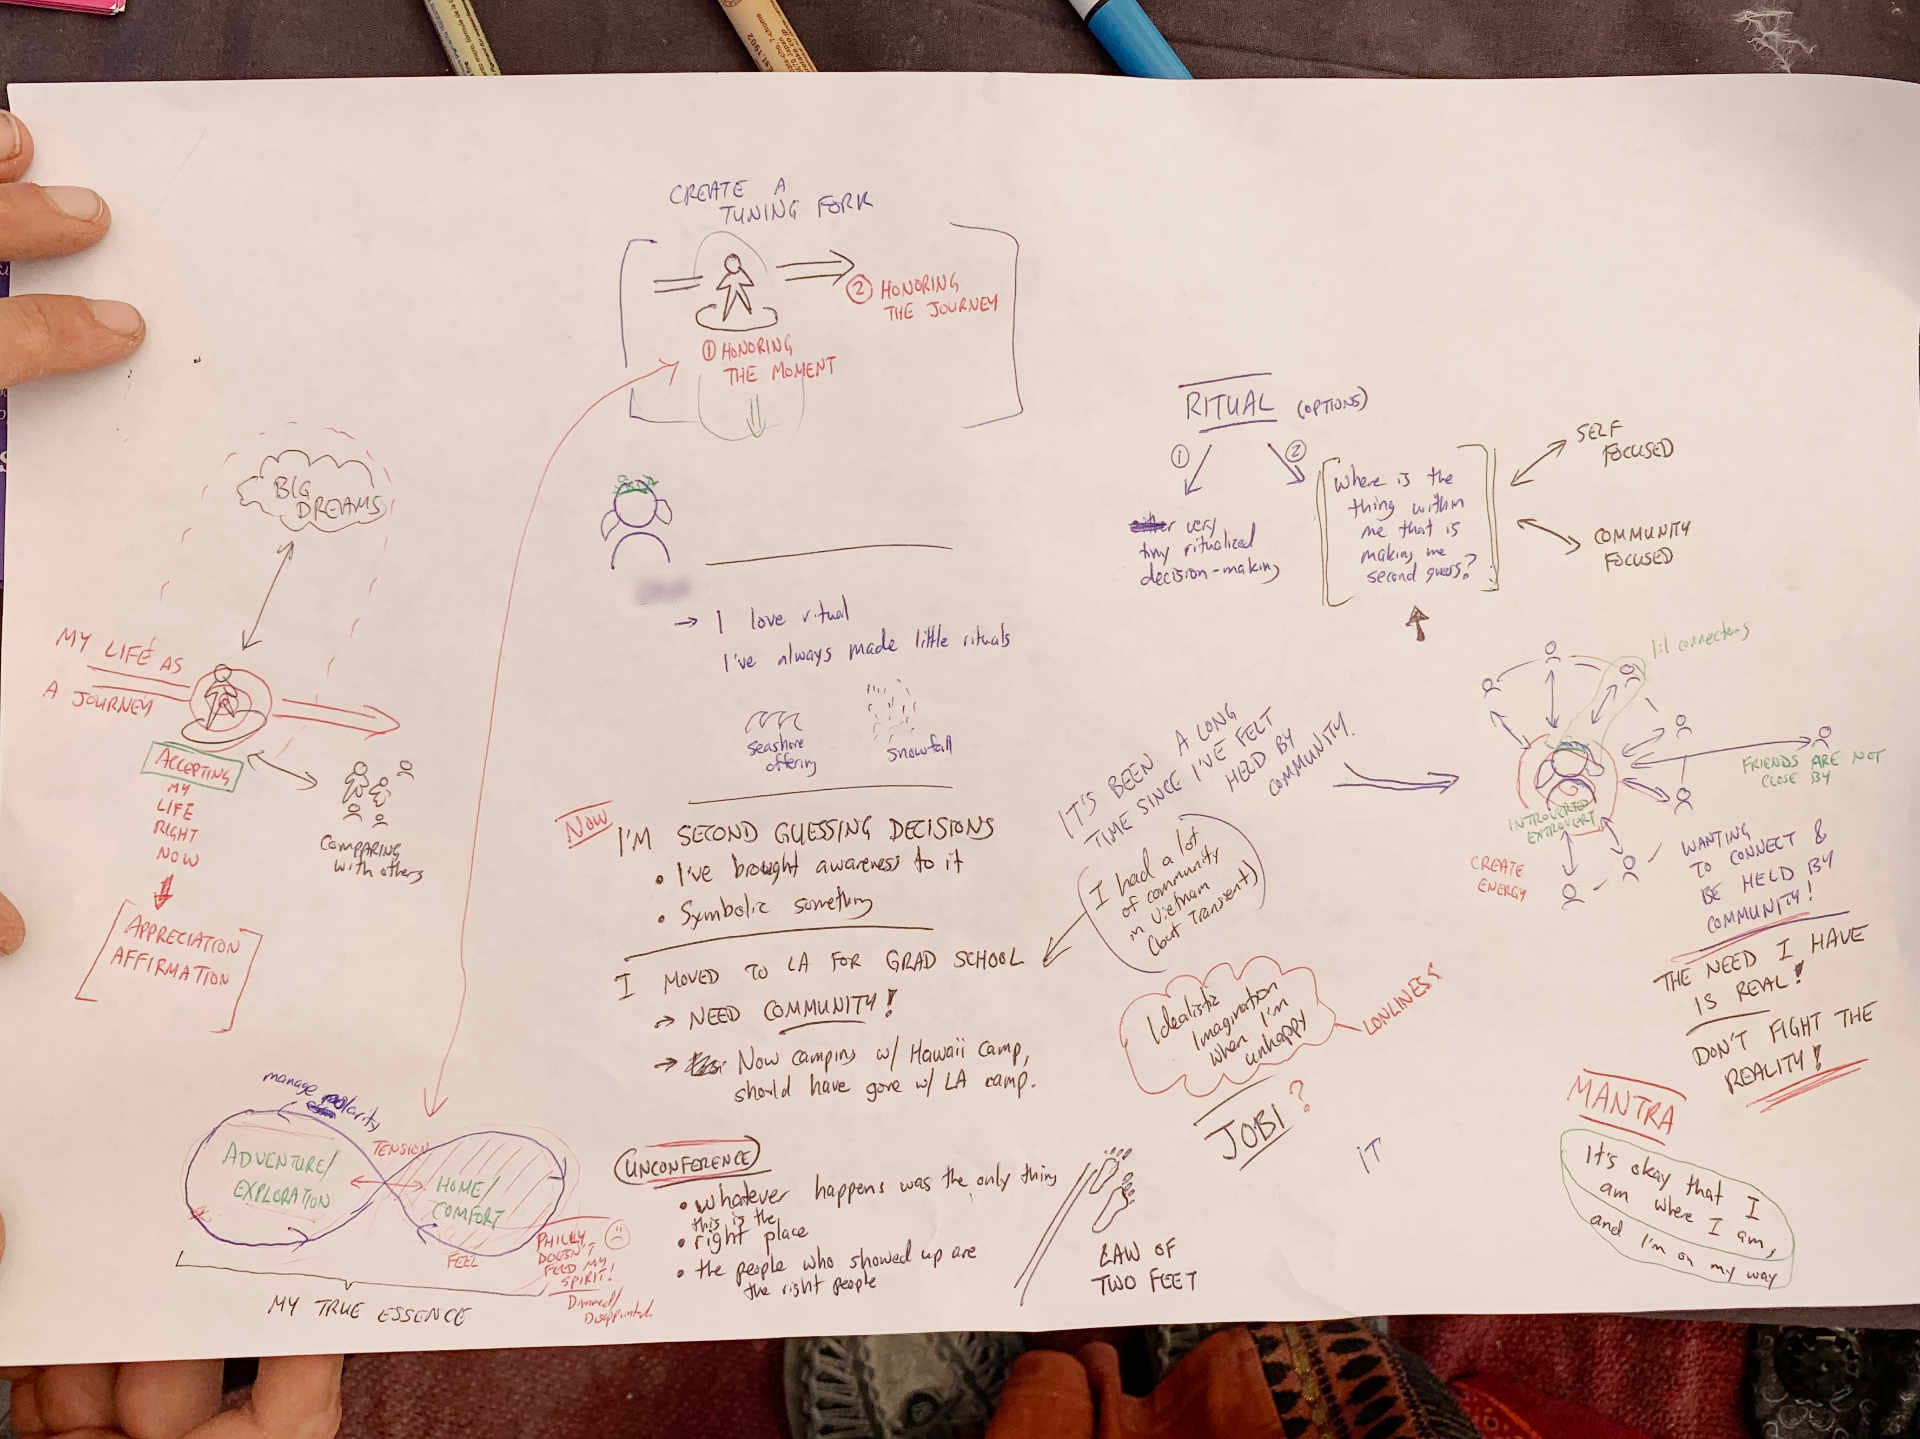 CREATE A
TUNING FORK
② HONORING
THE JOURNEY
① HONORING
THE MOMENT
BIG
DREAMS
MY LIFE AS
A JOURNEY
ACCEPTING
MY
LIFE
RIGHT
NOW
COMPARING
with others
APPRECIATION
AFFIRMATION
→ I love ritual
I've always made little rituals
seashore
offering
snowfall
NOW
I'M SECOND GUESSING DECISIONS
• I've brought awareness to it
• Symbolic something
I MOVED TO LA FOR GRAD SCHOOL
→ NEED COMMUNITY!
→ Now camping w/ Hawaii camp,
should have gone w/ LA camp.
RITUAL (OPTIONS)
①
②
very
tiny ritualized
decision-making
Where is the
thing within
me that is
making me
second guess?
SELF
FOCUSED
COMMUNITY
FOCUSED
IT'S BEEN A LONG
TIME SINCE I'VE FELT
HELD BY
COMMUNITY.
I had a lot
of community
in Vietnam
(but transient)
Idealistic
Imagination
when I'm
unhappy
LONLINESS
JOBI?
IT
1:1 connections
FRIENDS ARE NOT
CLOSE BY
INTROVERTED
EXTROVERT
CREATE
ENERGY
WANTING
TO CONNECT &
BE HELD BY
COMMUNITY!
THE NEED I HAVE
IS REAL!
DON'T FIGHT THE
REALITY!
MANTRA
It's okay that I
am where I am,
and I'm on my way
manage polarity
ADVENTURE/
EXPLORATION
TENSION
HOME/
COMFORT
FEEL
PHILLY
DOESN'T
FEED MY
SPIRIT!
Dimmed/
Disappointed
MY TRUE ESSENCE
UNCONFERENCE
• whatever happens was the only thing
this is the
• right place
• the people who showed up are
the right people
LAW OF
TWO FEET